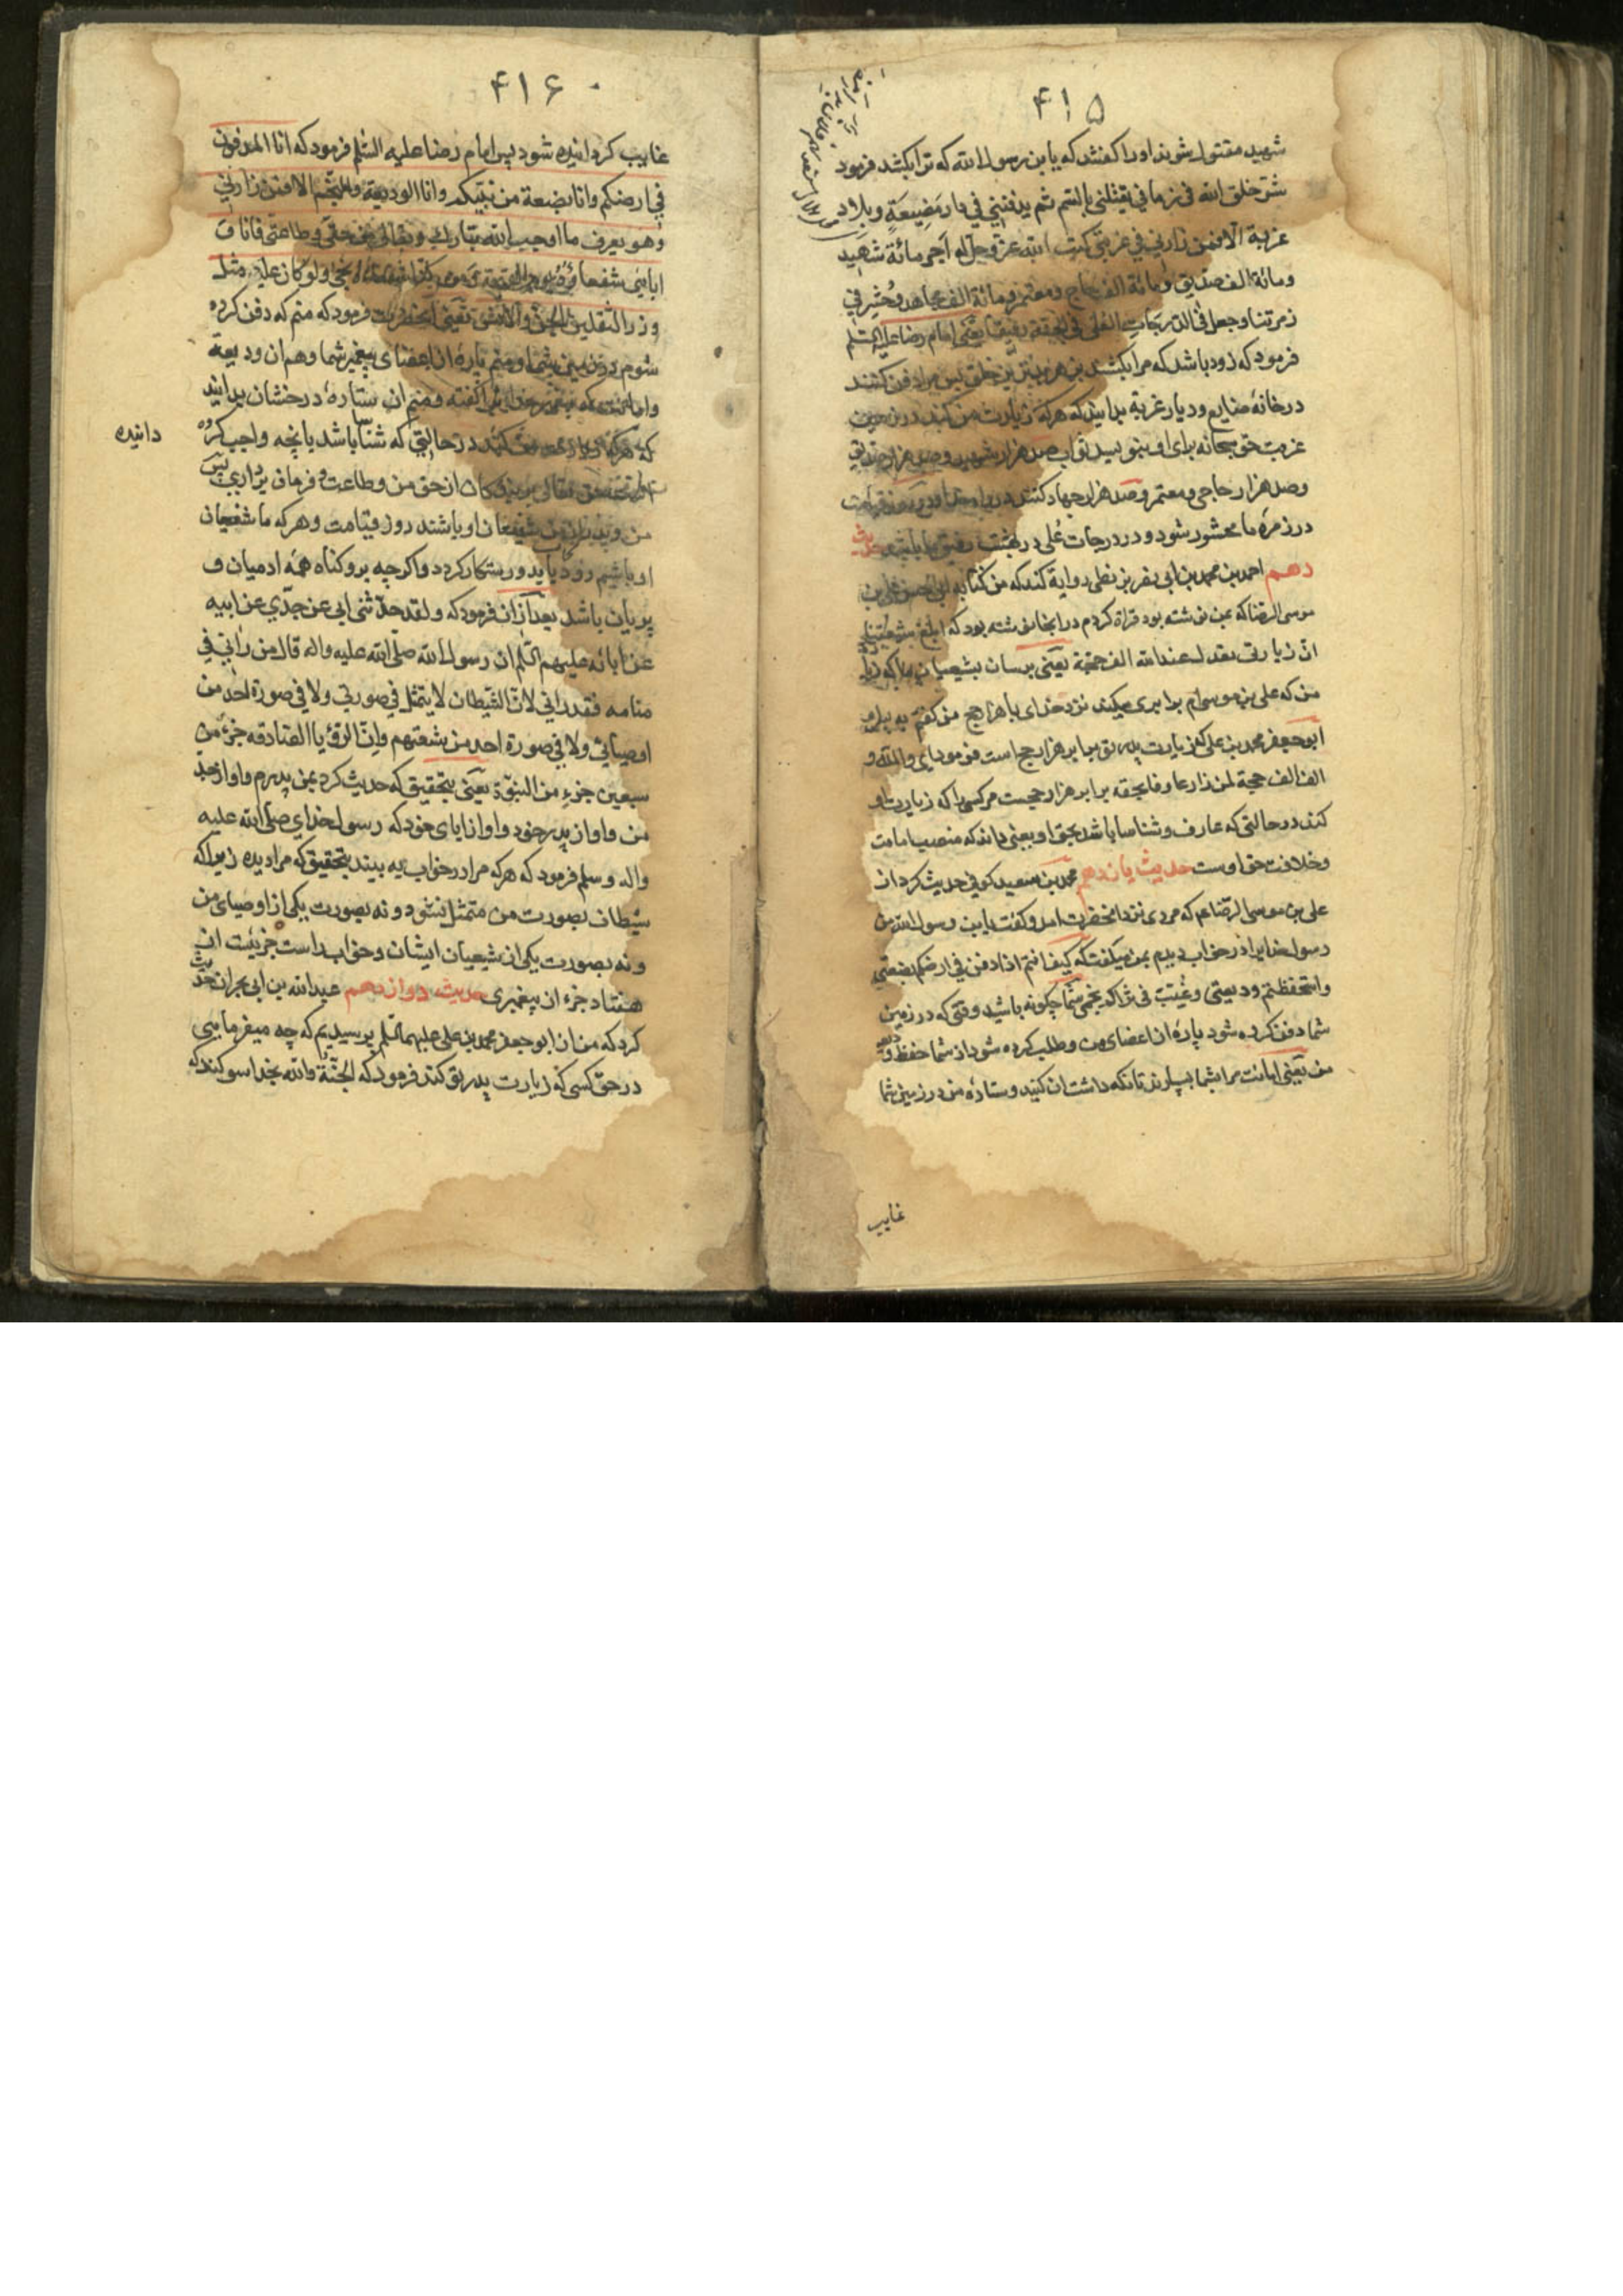 ۴۱۵
شهید مقتول شوند اورا کفتند که یا بن رسول الله که ترا بکشد فرمود
شرّ خلق الله فی زمانی یقتلنی بالسّم ثم یدفننی فی دار مضیعةٍ و بلاد
غربة الا فمن زارنی فی غربتی کتب الله عزّ وجلّ له اجر مائة شهید
ومائة الف صدّیق ومائة الف حاج ومعتمر ومائة الف مجاهد وحُشِر فی
زمرتنا وجعل فی الدّرجات العُلی فی الجنّة رفیقنا یعنی امام رضا علیه السّلم
فرمود که زود باشد که مرا بکشد بزهر بدترین خلق پس مرا دفن کنند
در خانهٔ ضایع ودیار غربة بدانید که هرکه زیارت من کند در زمین
غربت حق سبحانه برای او بنویسد ثواب صد هزار شهید وصد هزار صدیق
وصد هزار حاجی ومعتمر وصد هزار جهاد کننده در راه خدا ودر روز قیامت
در زمرهٔ ما محشور شود و در درجات عُلی در بهشت رفیق ما باشد حدیث
دهم احمد بن محمد بن ابی نصر بزنطی روایة کند که من کتاب ابی الحسن علی بن
موسی الرضا که بمن نوشته بود قراة کردم در انجا نوشته بود که ابلغ شیعتنا
ان زیارتی تعدل عند الله الف حجّة یعنی برسان بشیعیان ما که زیارت
من که علی بن موسی ام برابری میکند نزد خدای با هزار حج من گفتم به
ابوجعفر محمد بن علی که زیارت پدرت برابر هزار حج است فرمود ای والله و
الف الف حجة لمن زار عارفا بحقه برابر هزار حجست مر کسی را که زیارت او
کند در حالتی که عارف وشناسا باشد بحق او یعنی داند که منصب امامت
وخلافت حق اوست حدیث یازدهم محمد بن سعید کوفی حدیث کرد از
علی بن موسی الرّضا عم که مردی نزد انحضرت امد وکفت یابن رسول الله من
رسول خدایرا در خواب دیدم بمن میکفت که کیف انتم اذا دفن فی ارضکم بضعتی
واستحفظتم ودیعتی وغُیّبَ فی ثراکم نجمی شما چکونه باشید وقتی که در زمین
شما دفن کرده شود پارهٔ از اعضای من وطلب کرده شود از شما حفظ ودیعهٔ
من یعنی امانت مرا بشما بسپارند تا نکه داشت ان کنید وستارهٔ من در زمین شما
غایب
۴۱۶
غایب کردانیده شود پس امام رضا علیه السّلم فرمود که انا المدفون
فی ارضکم وانا بضعة من نبیّکم وانا الودیعة والنّجم الا فمن زارنی
وهو یعرف ما اوجب الله تبارک وتعالی من حقّی وطاعتی فانا و
ابائی شفعاؤه یوم القیمة ومن کنّا شفعاءه نجی ولو کان علیه مثل
وزر الثقلین الجن والانس یعنی انحضرت فرمود که منم که دفن کرده
شوم در زمین شما ومنم پارهٔ از اعضای پیغمبر شما وهم ان ودیعة
وامانت که پیغمبر خدای کفته ومنم ان ستارهٔ درخشان بدانید
که هرکه زیارت من کند در حالتی که شناسا باشد بانچه واجب کرده
دانیده
حق تعالی بر بندکان از حق من وطاعت وفرمان برداری پس
من وپدران من شفیعان او باشند روز قیامت وهرکه ما شفیعان
او باشیم زود باید ورستکار کردد واکرچه برو کناه همه ادمیان و
پریان باشد بعد از ان فرمود که ولقد حدّثنی ابی عن جدّی عن ابیه
عن ابائه علیهم السّلم ان رسول الله صلی الله علیه واله قال من رانی فی
منامه فقد رانی لانّ الشّیطان لا یتمثل فی صورتی ولا فی صورة احد من
اوصیائی ولا فی صورة احد من شیعتهم وانّ الرؤیا الصّادقه جزء من
سبعین جزءِ من النبوّة یعنی بتحقیق که حدیث کرد بمن پدرم واو از جد
من واو از پدر خود واو از ابای خود که رسول خدای صلی الله علیه
واله وسلم فرمود که هرکه مرا در خواب به بیند بتحقیق که مرا دیده زیرا که
شیطان بصورت من متمثل نشود ونه بصورت یکی از اوصیای من
ونه بصورت یکی از شیعیان ایشان وخواب راست جزئیت از
هفتاد جزء از پیغمبری حدیث دوازدهم عبدالله بن ابی نجران حدیث
کرد که من از ابوجعفر محمد بن علی علیهما السّلم پرسیدیم که چه میفرمایی
در حقّ کسی که زیارت پدرت کند فرمود که الجنّة والله بخدا سوکند که